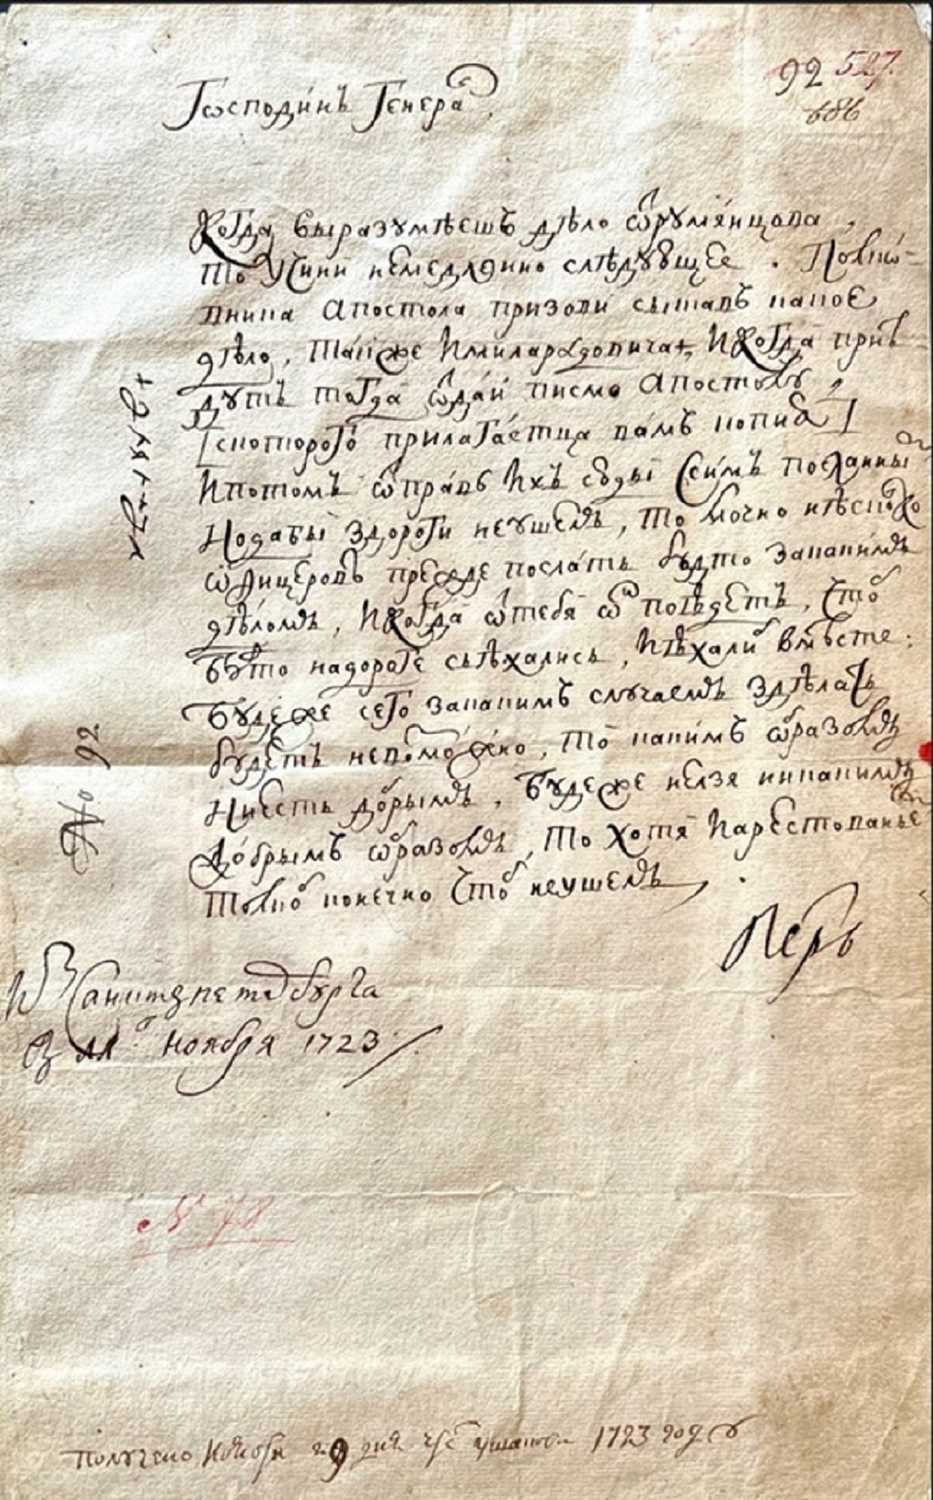 92 527.
686
Господинъ Генера
Когда выразумѣешъ дѣло Румянцова
то учини немедлѣнно слѣдующее. Полко-
вника Апостола призови сыщавъ какое
дѣло, также и Милорадовича, и когда прие
дутъ тогда ѿдай писмо Апостолу
[с которого прилагаетца вамъ копия]
и потомъ ѿправь ихъ суды с симъ посланны
но дабы з дороги не ушелъ, то мочно нѣсколко
ѿфицеровъ прежде послать будто за какимъ
дѣломъ, и когда ѿ тебя поѣдетъ, чтоб
бутто на дороге съѣхались, и ѣхали вмѣсте:
буде же сего за какимъ случаемъ здѣлать
будетъ невозможно, то какимъ ѡбразомъ
ни есть добрымъ. Буде же нелзя никакимъ
добрымъ ѡбразомъ, то хотя и арестованье
толко конечно чтоб не ушелъ
Петръ
No 92
Из Санктъпетербурга
ноября 1723
№ 78
Получено ноября 29 дня 1723 году